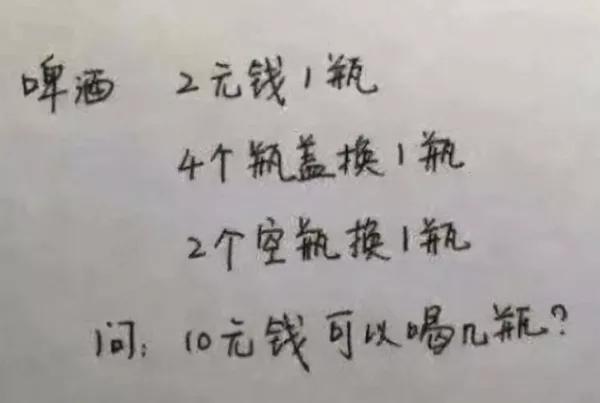 啤酒 2元钱1瓶
4个瓶盖换1瓶
2个空瓶换1瓶
问：10元钱可以喝几瓶？